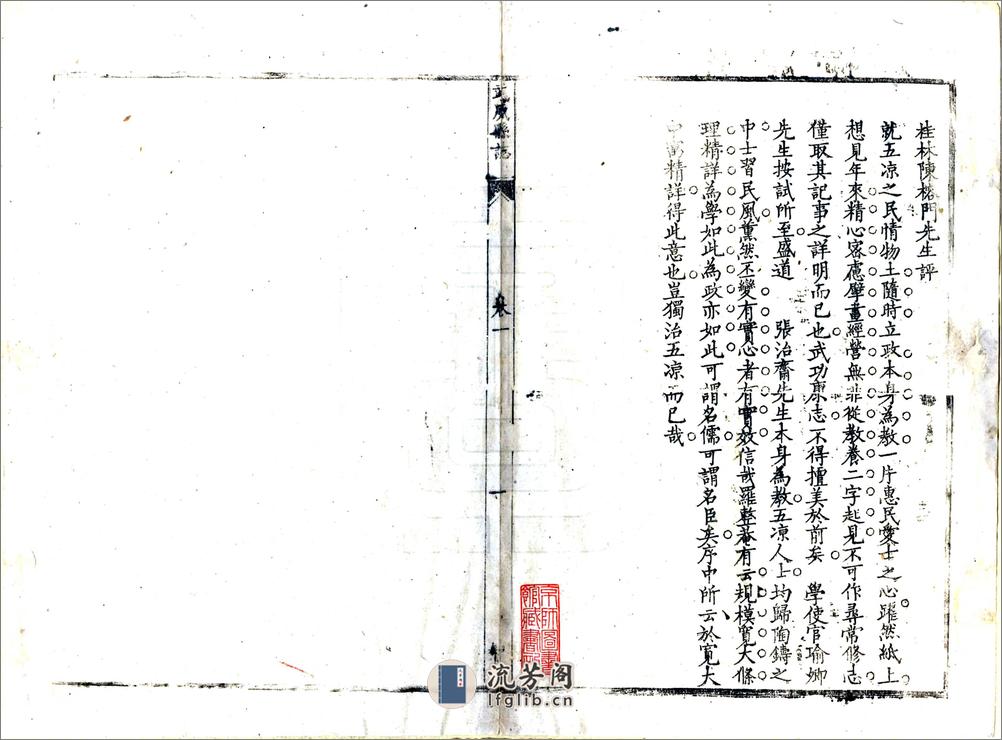 桂林陳榕門先生評
就五凉之民情物土隨時立政本身為教一片惠民愛士之心躍然紙上
想見年來精心宻慮擘畫經營無非從教養二字起見不可作尋常修志
僅取其記事之詳明而已也武功康志不得擅美於前矣 學使官瑜卿
先生按試所至盛道 張治齋先生本身為教五凉人士均歸陶鑄之
中士習民風薰然丕變有實心者有實效信哉羅整菴有云規模寬大條
理精詳為學如此為政亦如此可謂名儒可謂名臣矣序中所云於寬大
中寓精詳得此意也豈獨治五凉而已哉
武威縣誌
卷一
一
京師圖書館藏書印
流芳阁
lfglib.cn